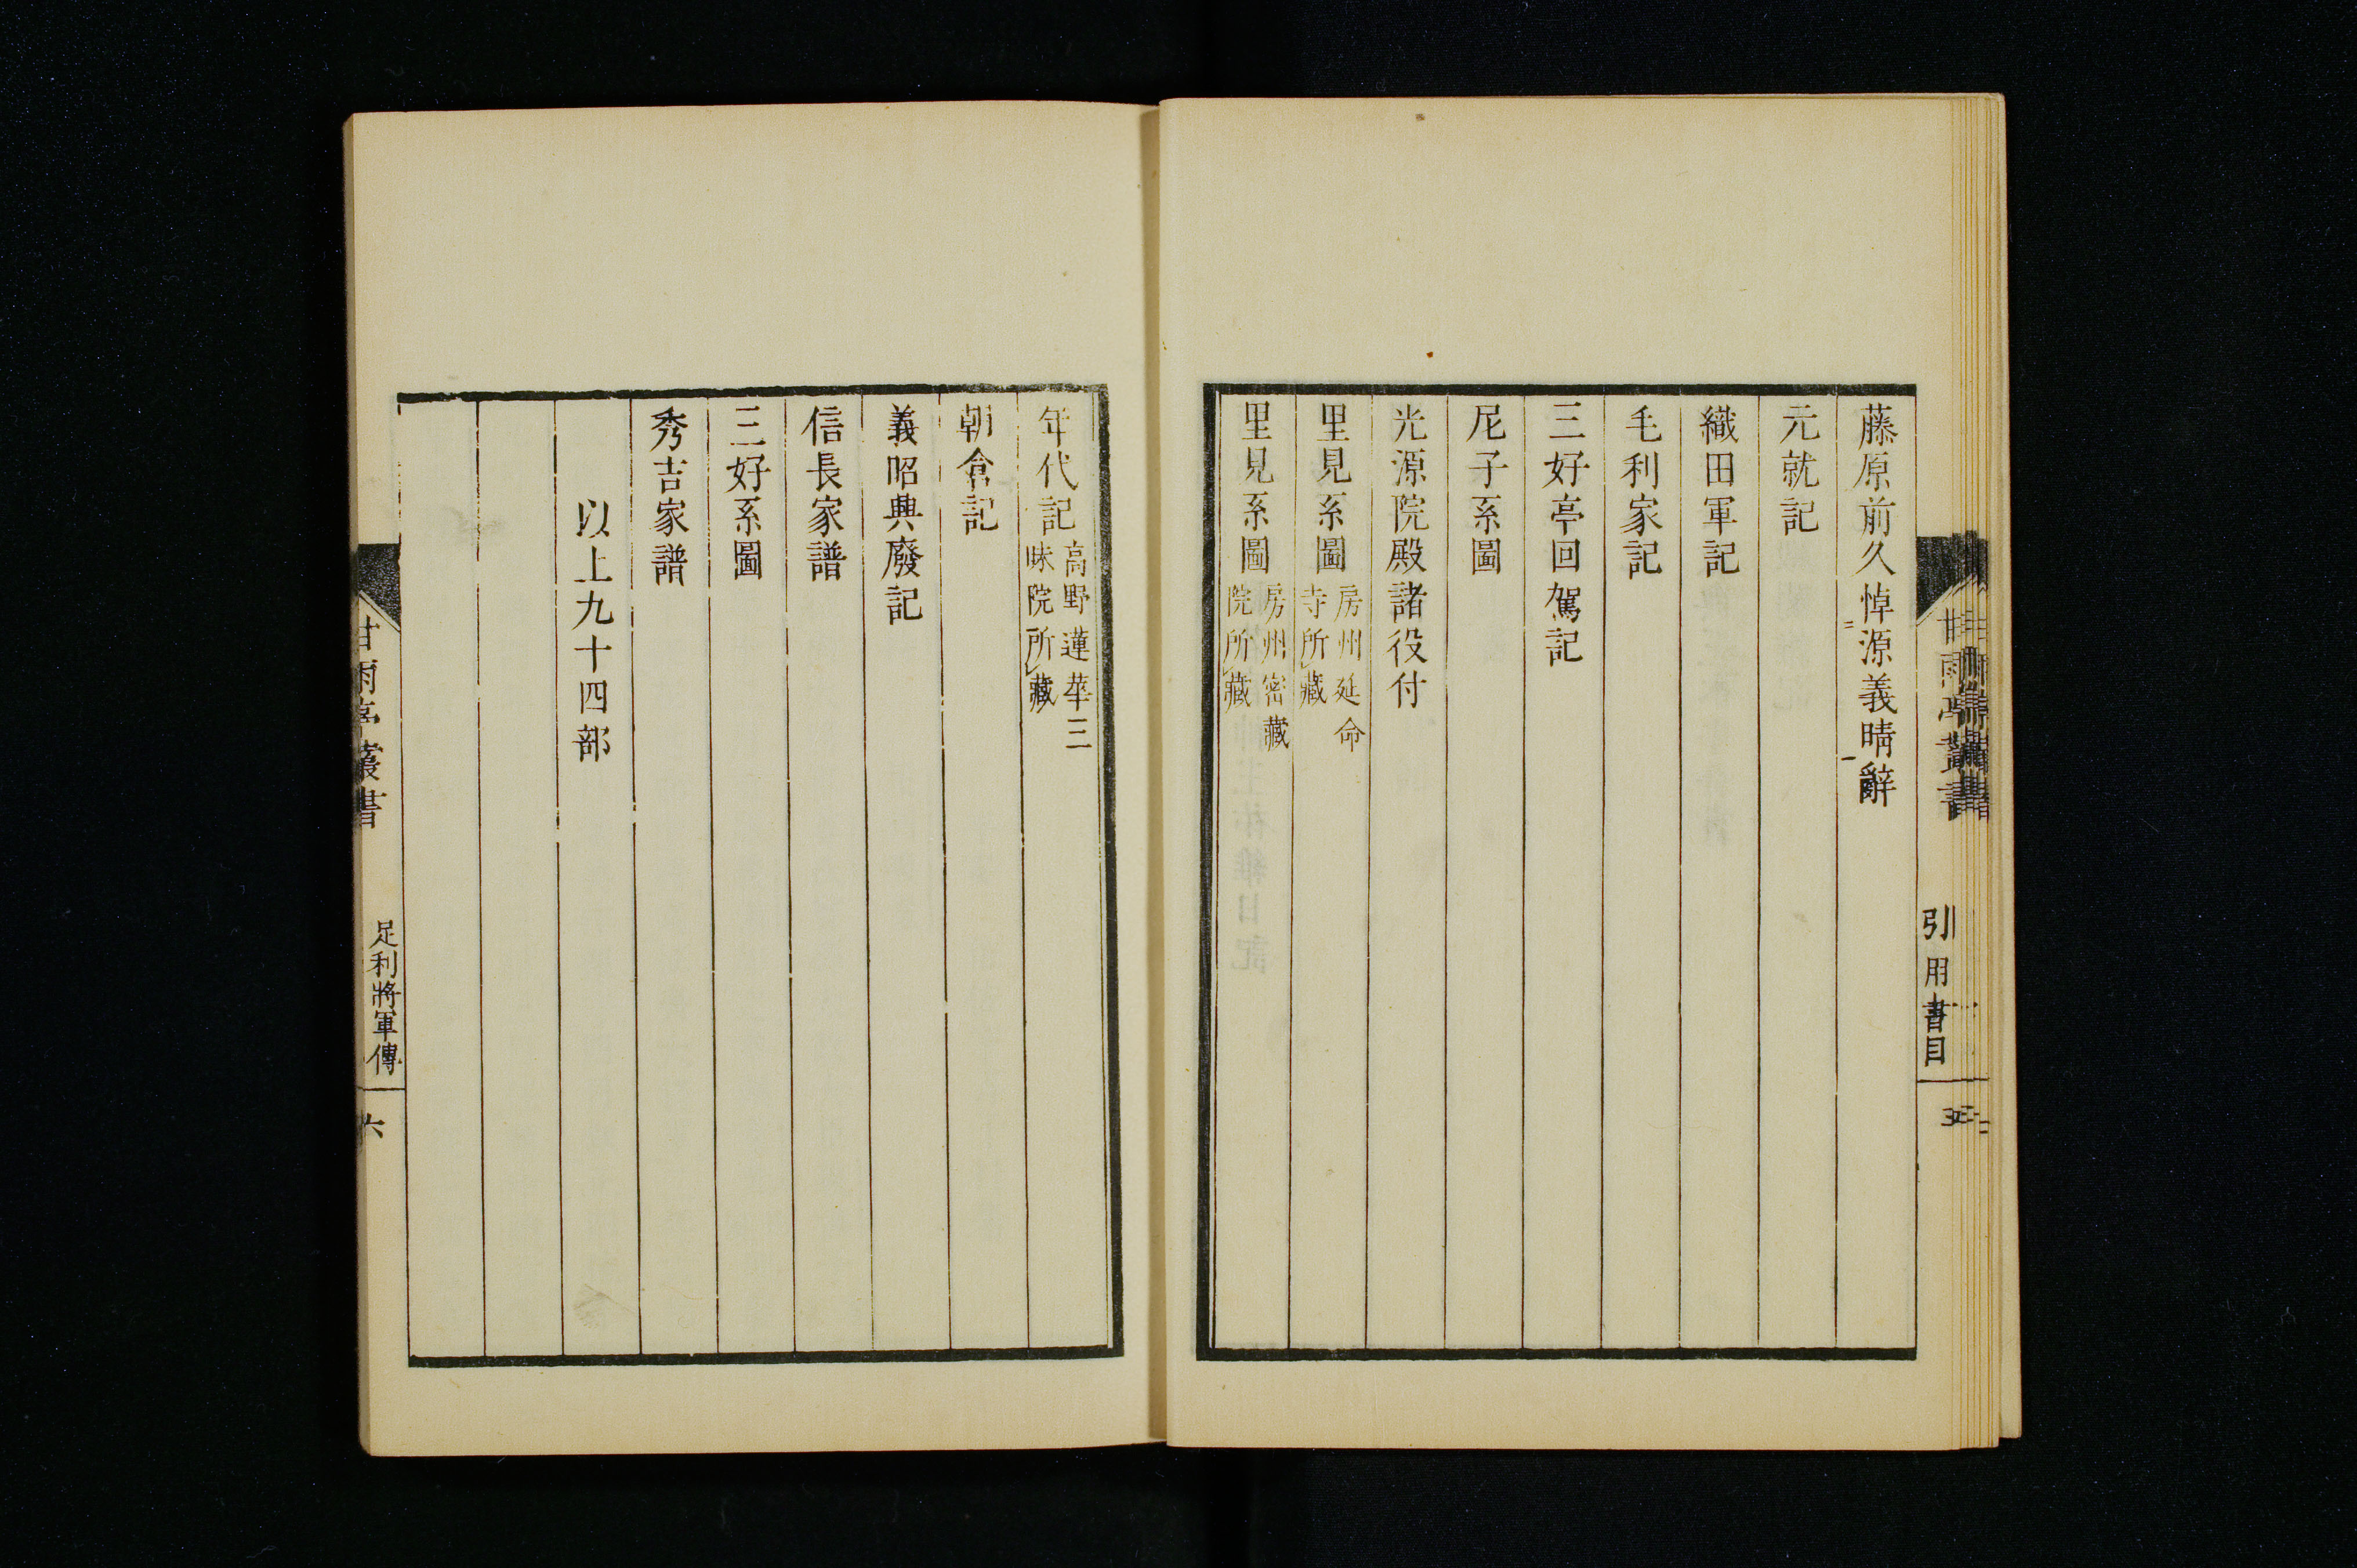 藤原前久悼源義晴辭
元就記
織田軍記
毛利家記
三好亭回駕記
尼子系圖
光源院殿諸役付
里見系圖 房州延命寺所藏
里見系圖 房州密藏院所藏
引用書目
年代記 高野蓮華三昧院所藏
朝倉記
義昭興廢記
信長家譜
三好系圖
秀吉家譜
以上九十四部
甘雨亭叢書
足利將軍傳
六